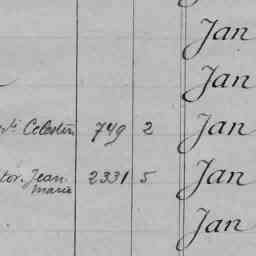 Jan
Jan
Celestin 749 2 Jan
tor. Jean 2331 5 Jan
Marie
Jan